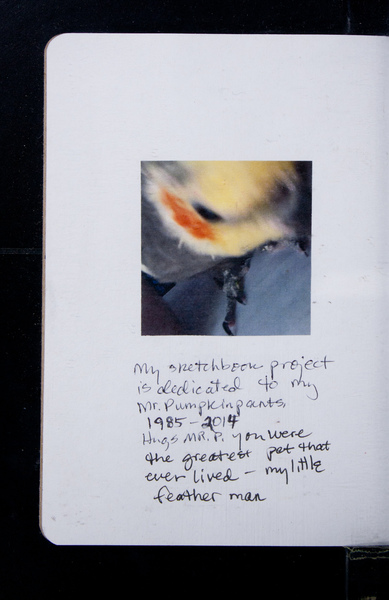 My sketchbook project
is dedicated to my
Mr. Pumpkinpants.
1985 - 2014
Hugs MR. P. you were
the greatest pet that
ever lived - my little
feather man